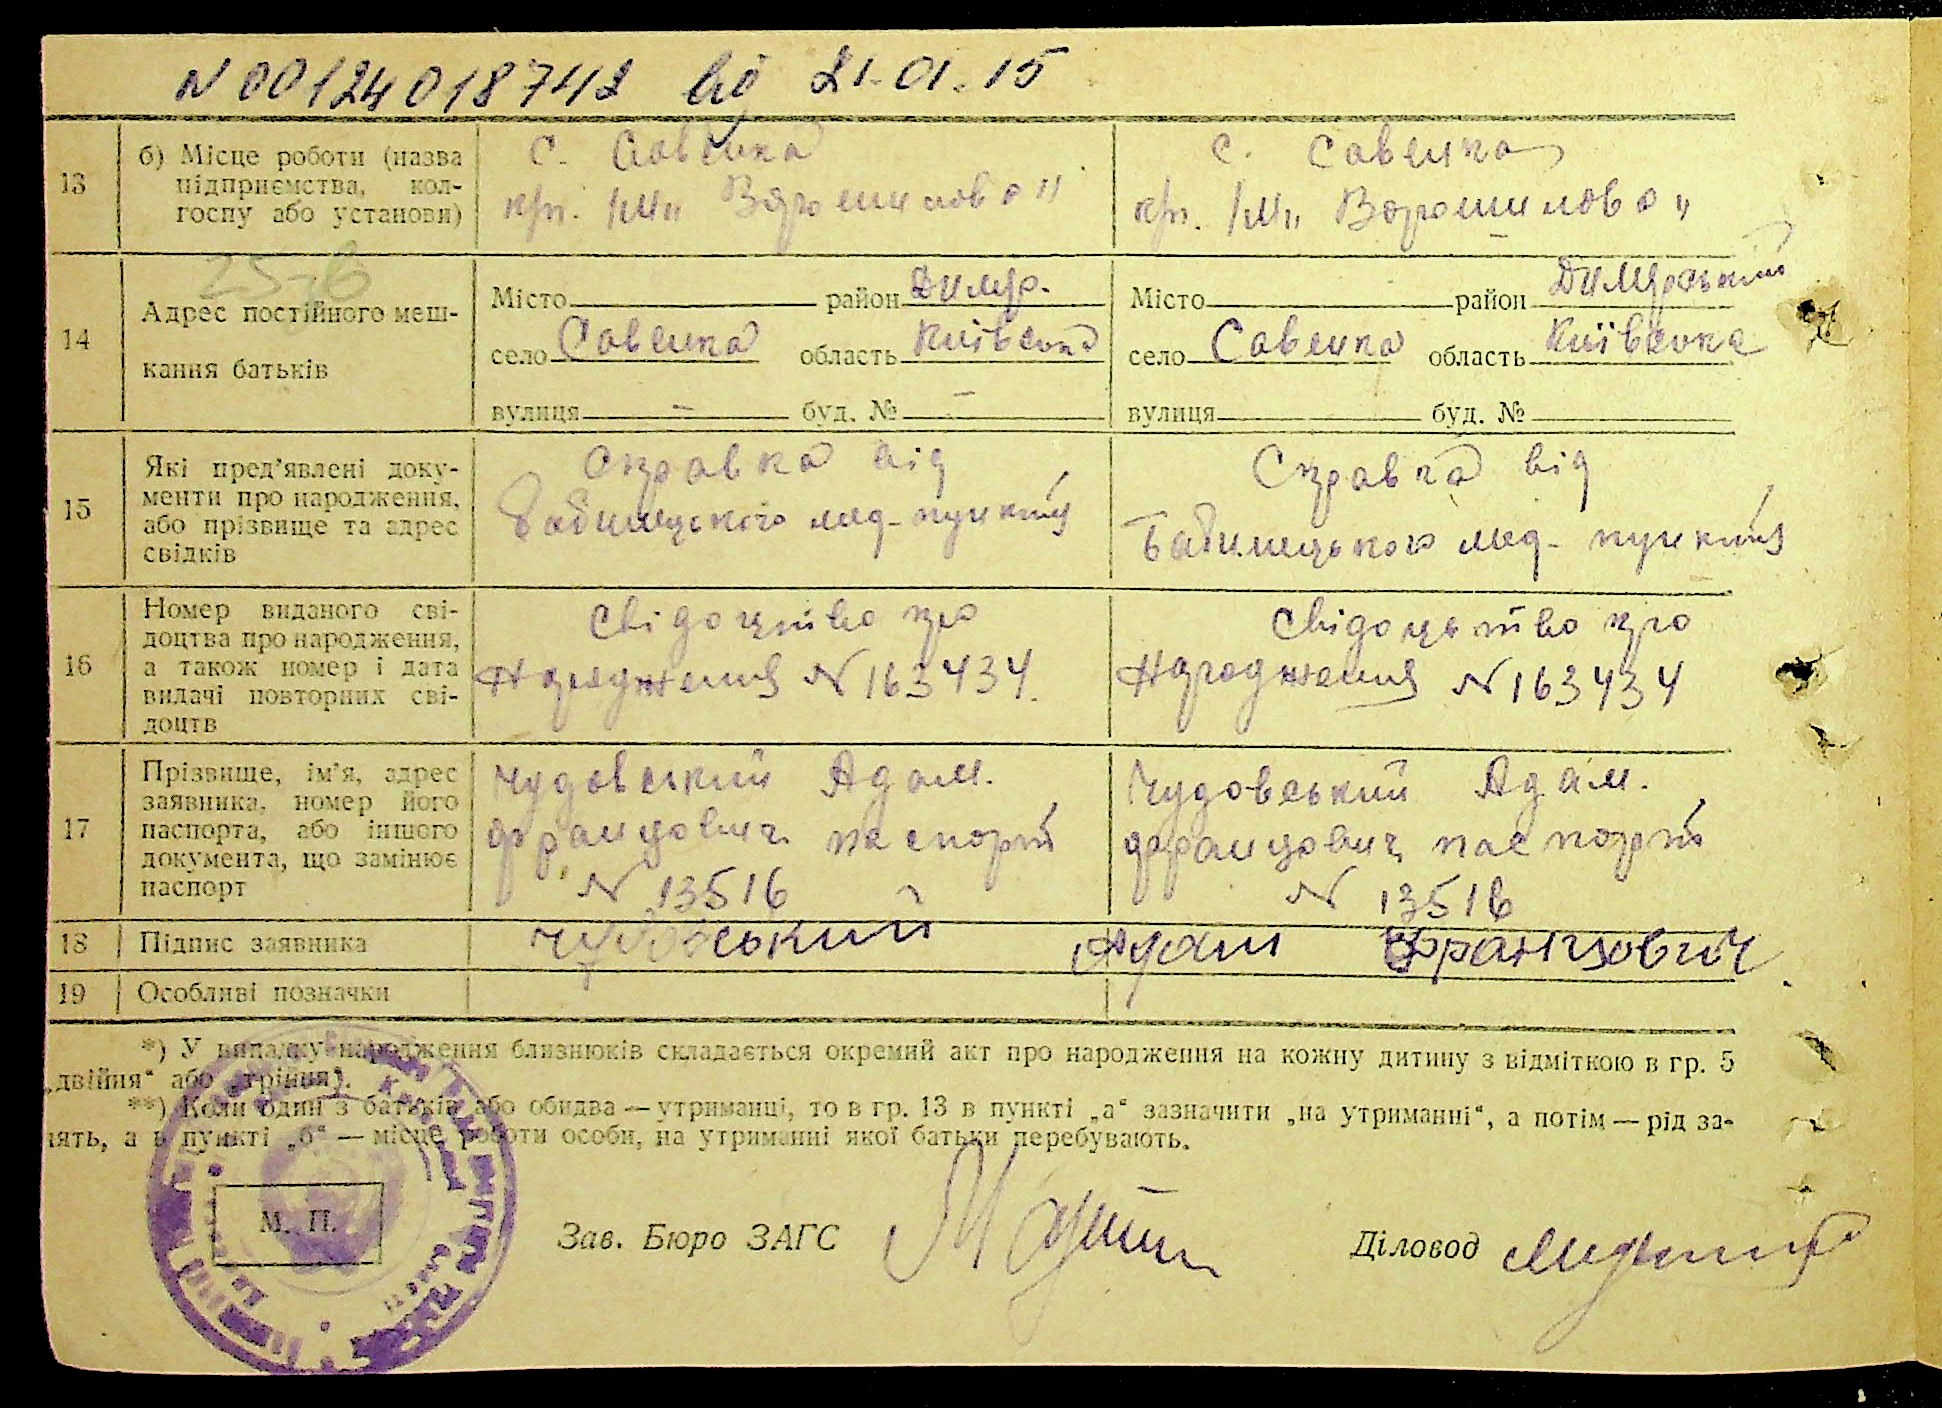 N 00124018742 від 21.01.15
13 б) Місце роботи (назва підприємства, кол-госпу або установи)
с. Савенка
кр. ім. "Ворошилова"
с. Савенка
кр. ім. "Ворошилова"
25-6
14 Адрес постійного меш-
кання батьків
Місто район Димер.
село Савенка область Київська
вулиця – буд. № –
Місто район Димерський
село Савенка область Київська
вулиця буд. №
15 Які пред’явлені доку-
менти про народження,
або прізвище та адрес
свідків
Справка від
Бабинецького мед-пункту
Справка від
Бабинецького мед-пункту
16 Номер виданого сві-
доцтва про народження,
а також номер і дата
видачі повторних сві-
доцтв
Свідоцтво про
Народження N 163434.
Свідоцьтво про
Народження N 163434
17 Прізвище, ім’я, адрес
заявника, номер його
паспорта, або іншого
документа, що замінює
паспорт
Чудовський Адам.
Францович паспорт
N 13516
Чудовський Адам.
Францович паспорт
N 13516
18 Підпис заявника Чудовський Адам Францович
19 Особливі позначки
*) У випадку народження близнюків складається окремий акт про народження на кожну дитину з відміткою в гр. 5
„двійня“ або „трійня“.
**) Коли один з батьків або обидва — утриманці, то в гр. 13 в пункті „а“ зазначити „на утриманні“, а потім — рід за-
нять, а в пункті „б“ — місце роботи особи, на утриманні якої батьки перебувають.
М. П.
Зав. Бюро ЗАГС
Діловод